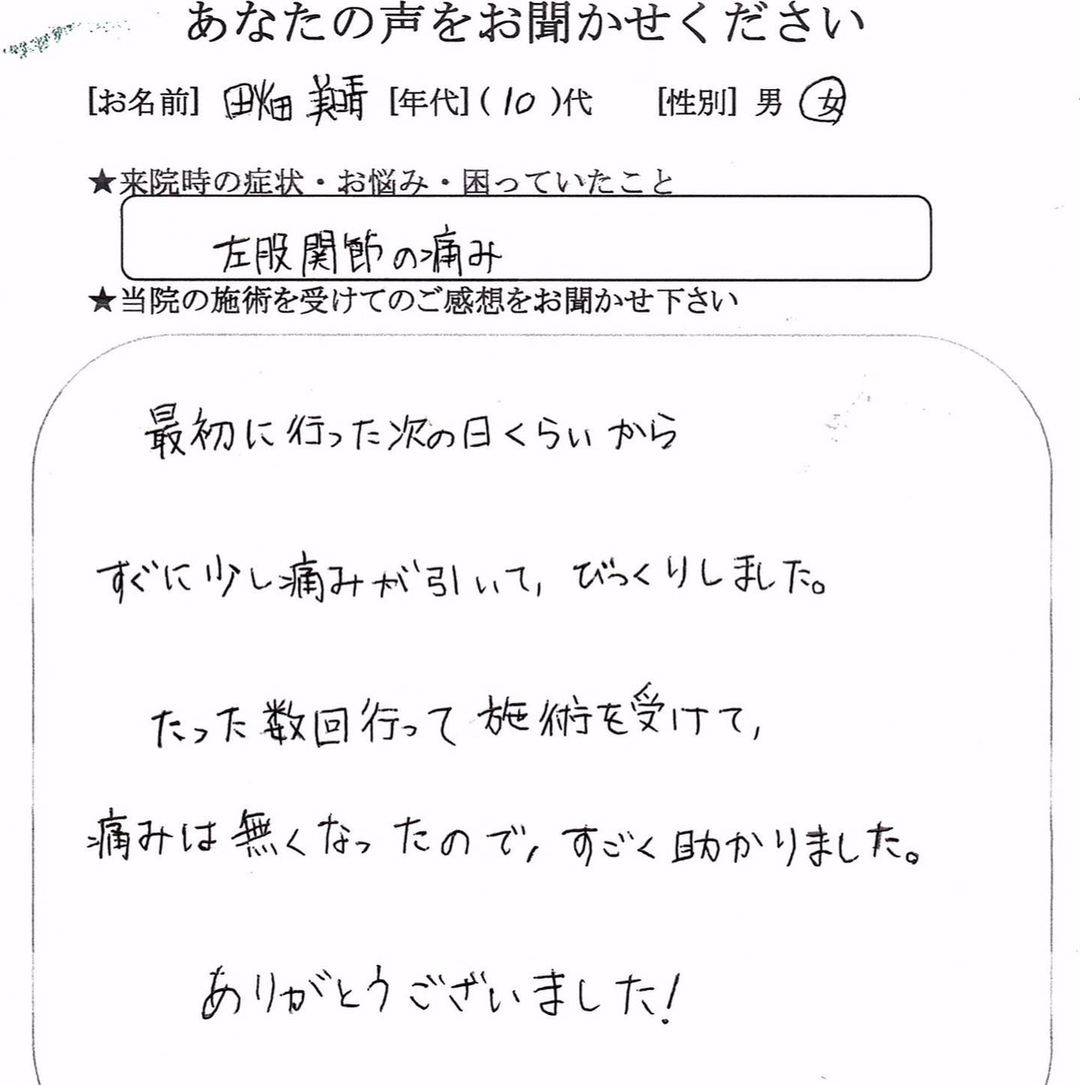 あなたの声をお聞かせください
[お名前] 田畑 美晴 [年代] ( 10 )代 [性別] 男 女
★来院時の症状・お悩み・困っていたこと
左股関節の痛み
★当院の施術を受けてのご感想をお聞かせ下さい
最初に行った次の日くらいから
すぐに少し痛みが引いて、びっくりしました。
たった数回行って施術を受けて、
痛みは無くなったので、すごく助かりました。
ありがとうございました!